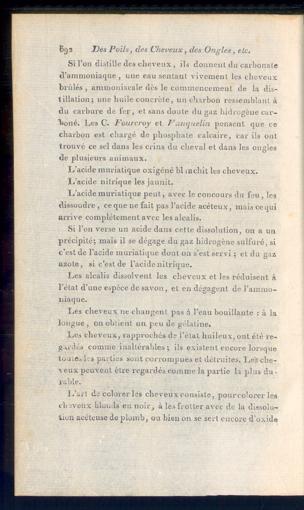 892 Des Poils, des Cheveux, des Ongles, etc.
Si l'on distille des cheveux, ils donnent du carbonate
d'ammoniaque, une eau sentant vivement les cheveux
brûlés, ammoniacale dès le commencement de la dis-
tillation; une huile concrète, un charbon ressemblant à
du carbure de fer, et sans doute du gaz hidrogène car-
boné. Les C. Fourcroy et Vauquelin pensent que ce
charbon est chargé de phosphate calcaire, car ils ont
trouvé ce sel dans les crins du cheval et dans les ongles
de plusieurs animaux.
L'acide muriatique oxigéné blanchit les cheveux.
L'acide nitrique les jaunit.
L'acide muriatique peut, avec le concours du feu, les
dissoudre, ce que ne fait pas l'acide acéteux, mais ce qui
arrive complètement avec les alcalis.
Si l'on verse un acide dans cette dissolution, on a un
précipité; mais il se dégage du gaz hidrogène sulfuré, si
c'est de l'acide muriatique dont on s'est servi; et du gaz
azote, si c'est de l'acide nitrique.
Les alcalis dissolvent les cheveux et les réduisent à
l'état d'une espèce de savon, et en dégagent de l'ammo-
niaque.
Les cheveux ne changent pas à l'eau bouillante: à la
longue, on obtient un peu de gélatine.
Les cheveux, rapprochés de l'état huileux, ont été re-
gardés comme inaltérables; ils existent encore lorsque
toutes les parties sont corrompues et détruites. Les che-
veux peuvent être regardés comme la partie la plus du-
rable.
L'art de colorer les cheveux consiste, pour colorer les
cheveux blonds en noir, à les frotter avec de la dissolu-
tion acéteuse de plomb, ou bien on se sert encore d'oxide